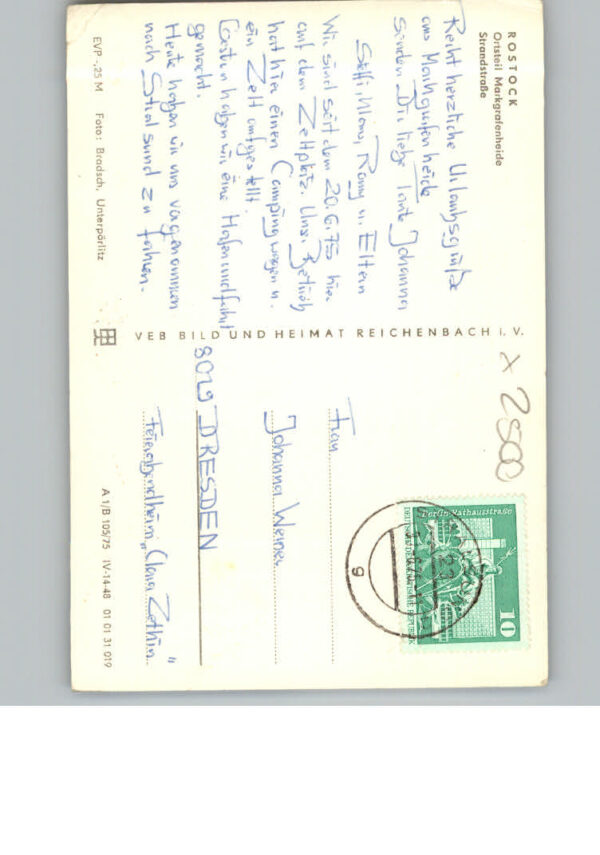 ROSTOCK
Ortsteil Markgrafenheide
Strandstraße
Recht herzliche Urlaubsgrüße
aus Markgrafenheide
senden Dir liebe Tante Johanna
Steffi, Romy u. Eltern
Wir sind seit dem 20.6.75 hier
auf dem Zeltplatz. Unser Betrieb
hat hier einen Campingwagen u.
ein Zelt aufgestellt.
Gestern haben wir eine Hafenrundfahrt
gemacht.
Heute haben wir uns vorgenommen
nach Stralsund zu fahren.
EVP -,25 M Foto: Brodsch, Unterpörlitz
VEB BILD UND HEIMAT REICHENBACH i. V.
x 2500
Berlin Rathausstraße
DEUTSCHE DEMOKRATISCHE REPUBLIK
10
g
Frau
Johanna Werner
8029 DRESDEN
Feierabendheim „Clara Zetkin"
A 1/B 105/75 IV-14-48 01 01 31 019